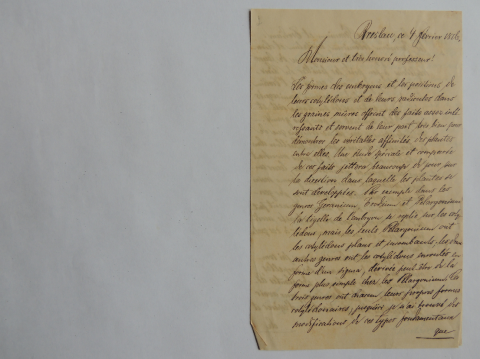 Breslau, ce 4 février
Monsieur et très honoré professeur!
Les formes des embryons et les positions de
leurs cotylédones et de leurs radicules dans
les graines mûres offrent des faits assez inté-
ressants et servent de leur part très bien pour
démontrer les véritables affinités des plantes
entre elles. Une étude spéciale et comparée
de ces faits jettera beaucoup de jour sur
la direction dans laquelle les plantes se
sont développées. Par exemple dans les
genres Geranium, Erodium et Pelargonium
la tigelle de l'embryon se replie sur les coty-
lédons, mais les seuls Pélargoniums ont
les cotylédons plans et les deux
autres genres ont les cotylédons enroulés en
forme d'un sigma, dérivée peut-être de la
forme plus simple chez les Pélargoniums. Les
trois genres ont chacun leurs propres formes
cotylédonaires, jusqu'ici je n'ai trouvé des
modifications de ces types fondamentaux
que